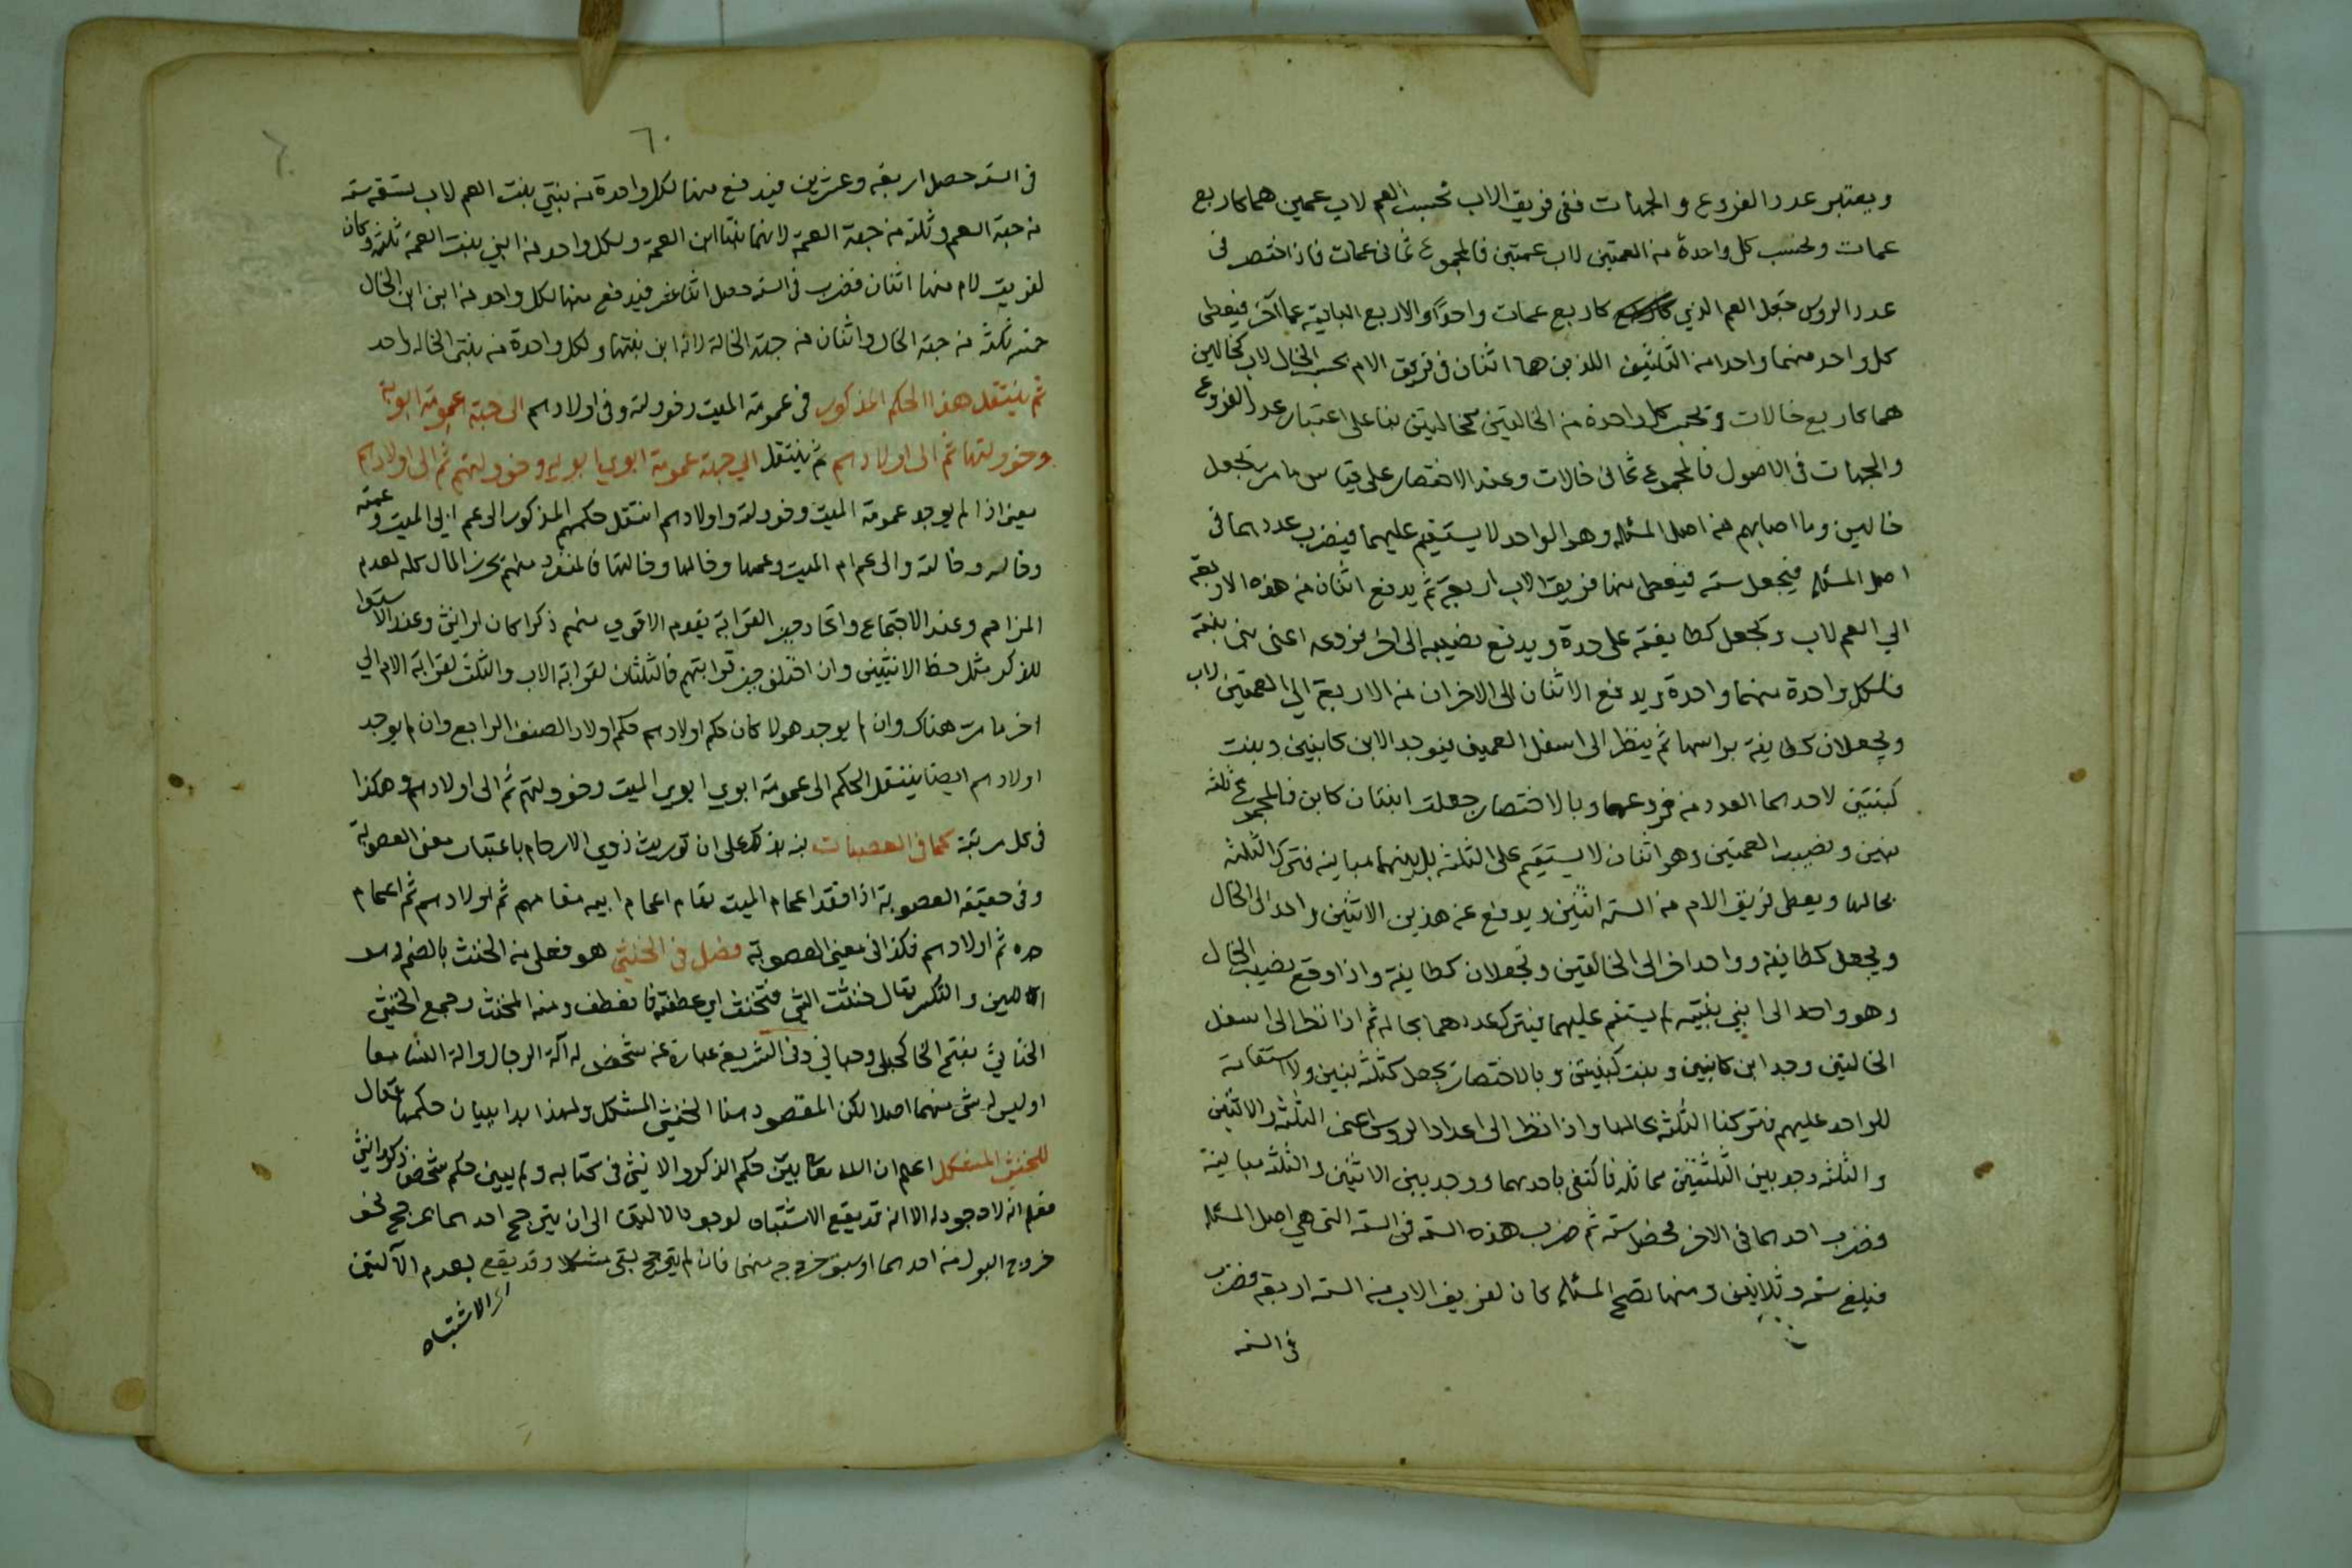 ويعتبر عدد الفروع والجهات ففى فريق الاب تحسب العم لاب عمين هما كاربع
عمات وتحسب كل واحدة من العمتين لاب عمتين فالمجموع ثمانى عمات فاذا اختصر فى
عدد الروس جعل العم الذي كاربع عمات واحدًا والاربع الباقية عما آخر فيعطى
كل واحد منهما واحدا من الثلثين اللذين هما اثنان فى فريق الام تحسب الخال لاب كخالين
هما كاربع خالات وتحسب كل واحدة من الخالتين كخالتين بناء على اعتبار عدد الفروع
والجهات فى الاصول فالمجموع ثمانى خالات وعند الاختصار على قياس ما مر تجعل
خالين وما اصابهم من اصل المسئلة وهو الواحد لا يستقيم عليهما فيضرب عددهما فى
اصل المسئلة فيجعل ستة فيعطى منها فريق الاب اربعة ثم يدفع اثنان من هذه الاربعة
الي العم لاب ويجعل كطايفة على حدة ويدفع نصيبه الى اخر فروعه اعنى بنتى بنته
فلكل واحدة منهما واحدة ويدفع الاثنان الاخران من الاربعة الي العمتين لاب
ويجعلان كطايفة براسها ثم ينظر الى اسفل العمين فيوجد الابن كابنين وبنت
كبنتين لاحدهما العدد من فروعهما وبالاختصار جعلت ابنتان كابن فالمجموع ثلثة
بنين ونصيب العمتين وهو اثنان لا يستقيم على الثلثة بل بينهما مباينة فتترك الثلثة
بحالها ويعطى فريق الام من الستة اثنين ويدفع عن هذين الاثنين واحد الى الخال
ويجعل كطايفة وواحد اخر الى الخالتين وتجعلان كطايفة واذا وقع نصيب الخال
وهو واحد الى ابني بنته لم يستقم عليهما فيترك عددهما بحاله ثم اذا نظر الى اسفل
الخالتين وجد ابن كابنين وبنت كبنتين وبالاختصار يجعل كثلثة بنين ولا استقامة
للواحد عليهم فتركنا الثلثة بحالها واذا نظر الى اعداد الروس اعنى الثلثة والاثنين
والثلثة وجد بين الثلثتين مماثلة فاكتفى باحدهما ووجد بين الاثنين والثلثة مباينة
فضرب احدهما فى الاخر فحصل ستة ثم ضرب هذه الستة فى الستة التى هي اصل المسئلة
فبلغ ستة وثلاثين ومنها تصح المسئلة كان لفريق الاب من الستة اربعة فضرب
فى الستة
٦٠
فى الستة حصل اربعة وعشرين فيدفع منها لكل واحدة من بنتي بنت العم لاب تسعة ستة
من جهة العم وثلثة من جهة العمة لانهما بنتا ابن العمة ولكل واحد من ابني بنت العمة ثلثة وكان
لفريق الام منها اثنان فضرب فى الستة حصل اثنا عشر فيدفع منها لكل واحد من ابنى ابن الخال
خمسة ثلثة من جهة الخال واثنان من جهة الخالة لانه ابن بنتها ولكل واحدة من بنتى الخالة واحد
ثم ينتقل هذا الحكم المذكور فى عمومة الميت وخولته وفى اولادهم الى جهة عمومة ابويه
وخولتهما ثم الى اولادهم ثم ينتقل الي جهة عمومة ابوي ابويه وخولتهم ثم الى اولادهم
يعنى اذا لم يوجد عمومة الميت وخولته واولادهم انتقل حكمهم المذكور الى عم ابى الميت وعمته
وخاله وخالته والى عم ام الميت وعمتها وخالها وخالتها فالمنفرد منهم يحرز المال كله لعدم
المزاحم وعند الاجتماع واتحاد حيز القرابة يقدم الاقوي منهم ذكرا كان او انثى وعند الاستوا
للذكر مثل حظ الانثيين وان اختلف حيز قرابتهم فالثلثان لقرابة الاب والثلث لقرابة الام الي
اخر ما مر هناك وان لم يوجد هولا كان حكم اولادهم حكم اولاد الصنف الرابع وان لم يوجد
اولادهم ايضا ينتقل الحكم الى عمومة ابوي ابوي الميت وخولتهم ثم الى اولادهم وهكذا
فى كل مرتبة كما فى العصبات بناء على ان توريث ذوي الارحام باعتبار معنى العصوبة
وفى حقيقة العصوبة اذا فقد اعمام الميت تقام اعمام ابيه مقامهم ثم اولادهم ثم اعمام
جده ثم اولادهم فكذا فى معنى العصوبة فصل فى الخنثى هو فعلى من الخنث بالضم وهو
اللين والتكسر يقال خنثت الشي فتخنث اي عطفته فانعطف ومنه المخنث وجمع الخنثى
الخناثى بفتح الخا كحبلى وحبالى وفى الشريعة عبارة عن شخص له آلة الرجال والة النسا معا
او ليس له شى منهما اصلا لكن المقصود هنا الخنثى المشكل ولهذا بدا ببيان حكمه فقال
للخنثى المشكل اعلم ان الله تعا بين حكم الذكر والانثى فى كتابه ولم يبين حكم شخص ذكر وانثى
فعلم انه لا وجود له الا انه قد يقع الاشتباه لوجود الالتين الى ان يترجح احدهما بمرجح نحو
خروج البول من احدهما او سبق خروجه منهما فان لم يترجح بقى مشكلا وقد يقع بعدم الآلتين
الاشتباه